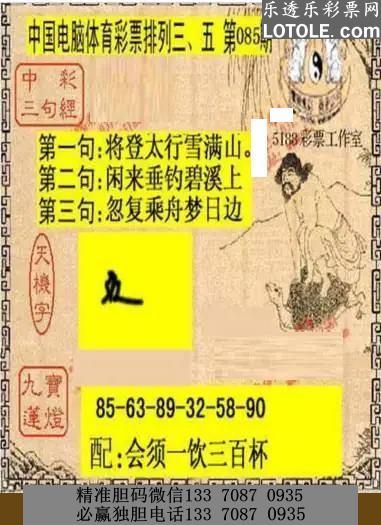 乐透乐彩票网
LOTOLE.COM
中国电脑体育彩票排列三、五 第085期
中彩
三句經
5188彩票工作室
第一句:将登太行雪满山。
第二句:闲来垂钓碧溪上
第三句:忽复乘舟梦日边
天機字
九寶
蓮燈
85-63-89-32-58-90
配:会须一饮三百杯
精准胆码微信133 7087 0935
必赢独胆电话133 7087 0935